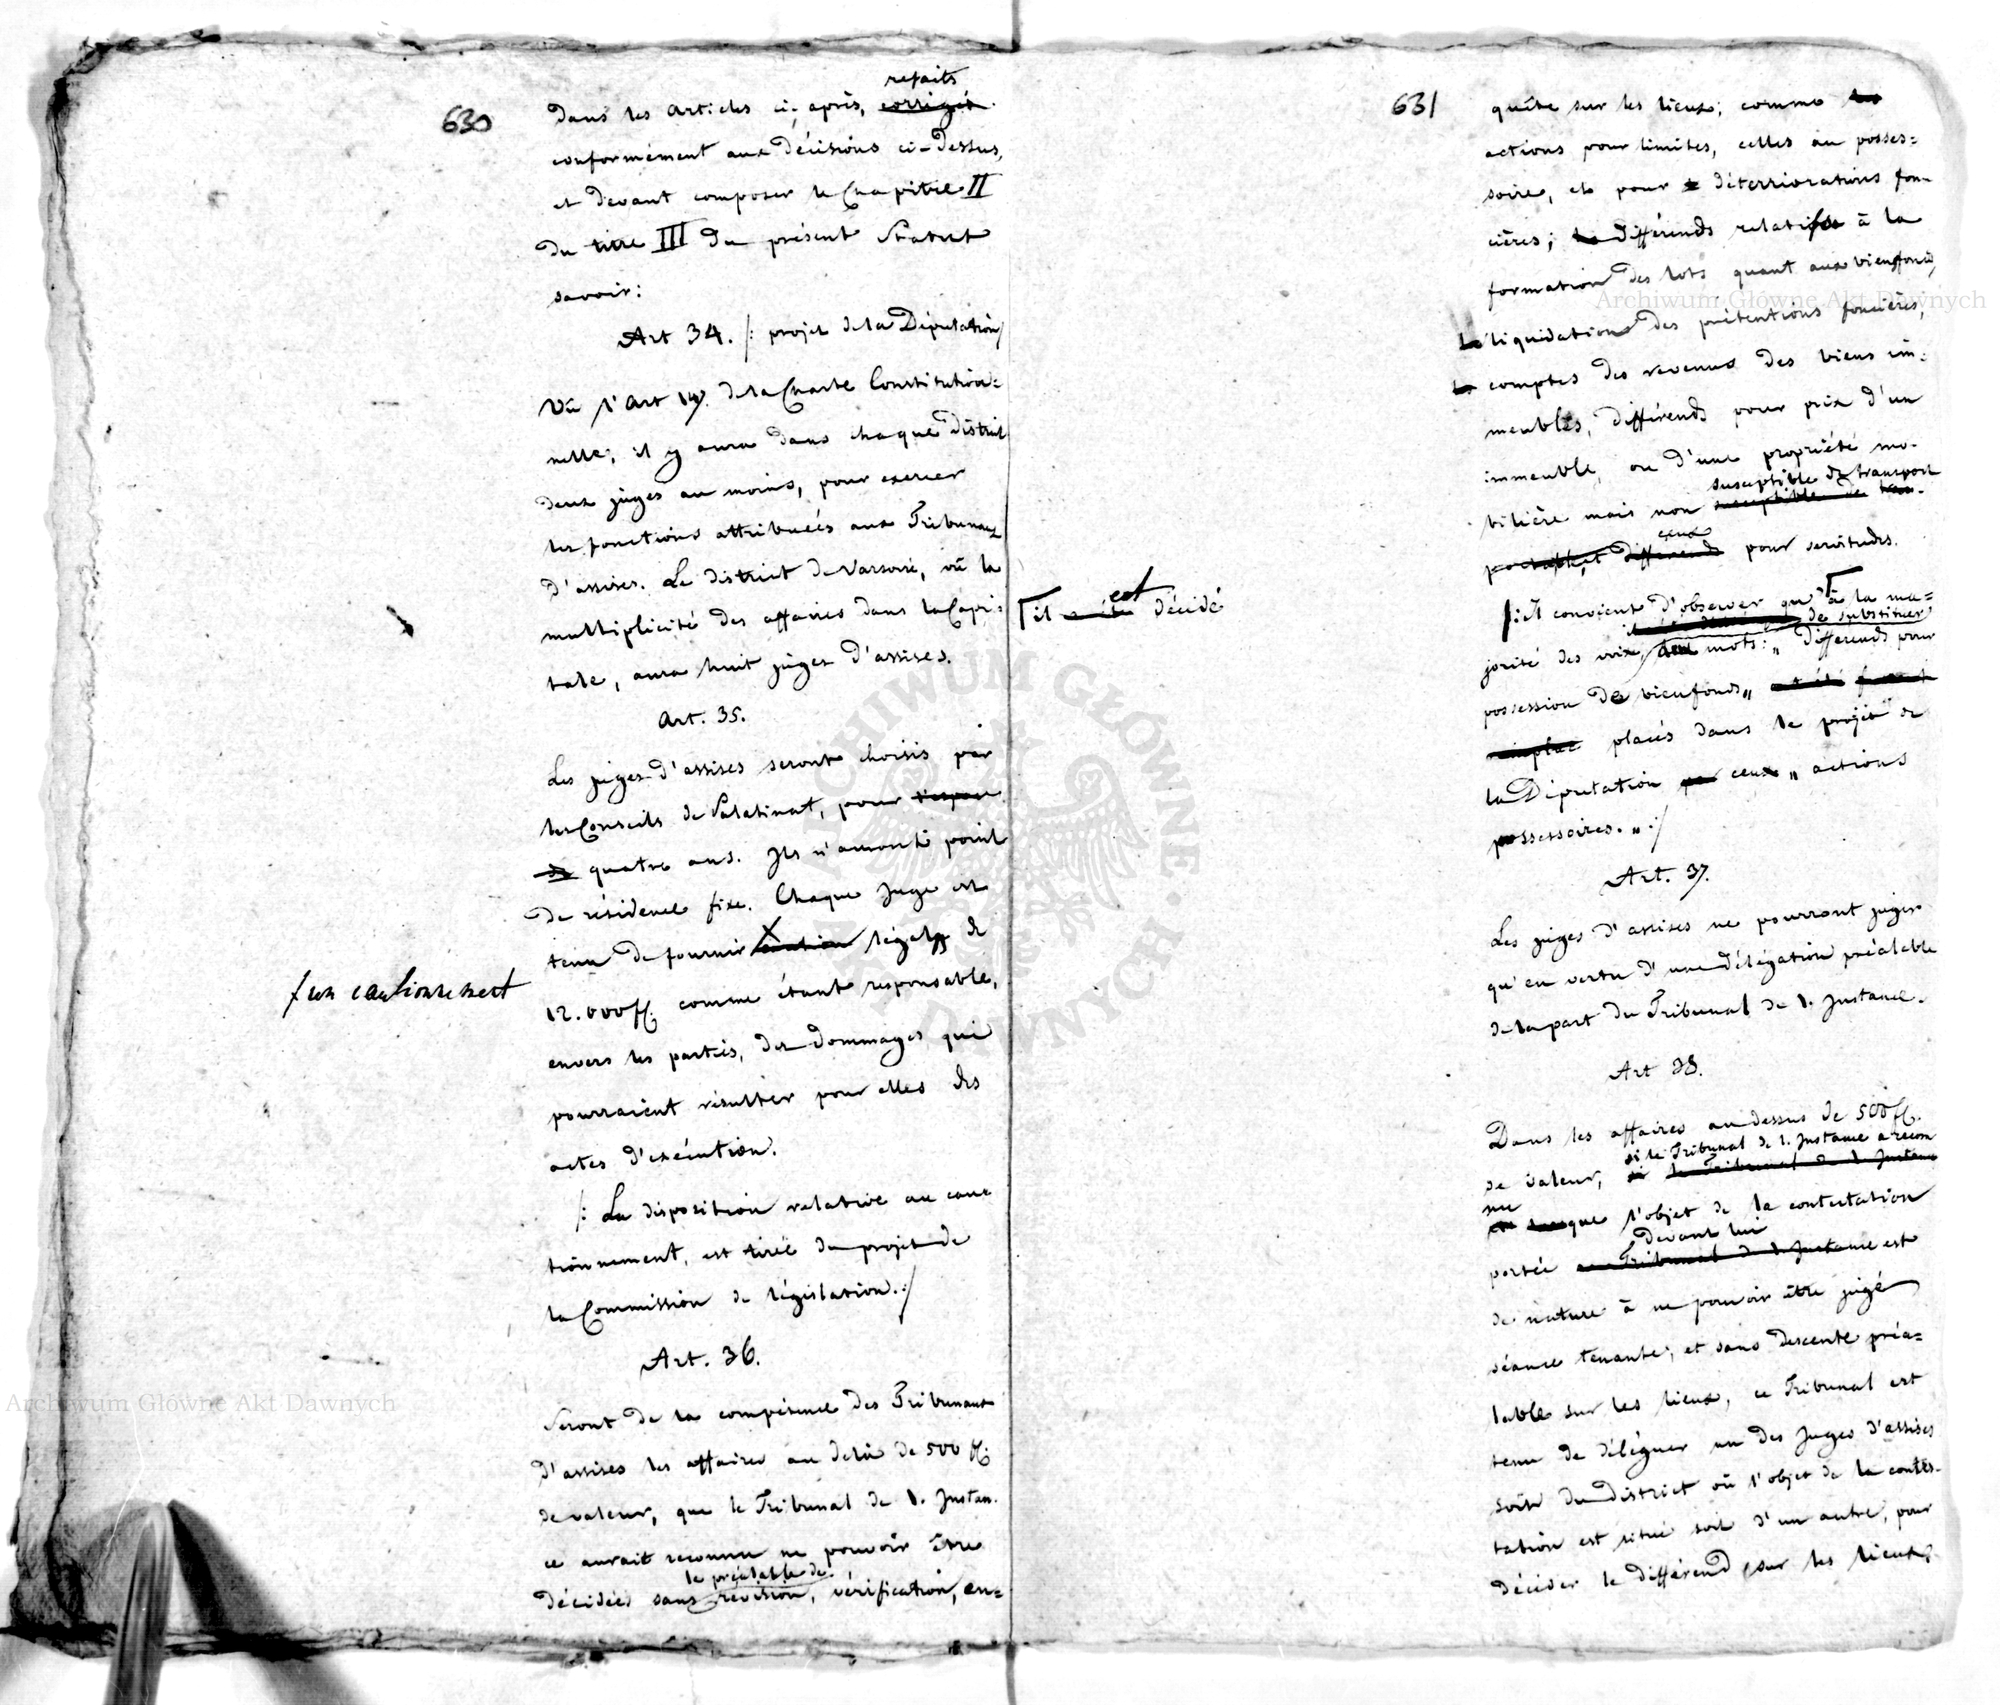 630
refaits
dans les articles ci, après, corrigés
conformément aux décisions ci-dessus,
et devant composer le Chapitre II
du titre III du présent Statut
savoir:
Art 34. /: projet de la Députation/
Vû l'Art 147. de la Charte Constitution=
nelle; il y aura dans chaque district
deux juges au moins, pour exercer
les fonctions attribuées aux Tribunaux
d'assises. Le district de Varsovie, vû la
multiplicité des affaires dans la Capi=
tale, aura huit juges d'assises.
Art. 35.
Les juges d'assises seront choisis par
les Conseils de Palatinat, pour l'espace
de quatre ans. Ils n'auront point
de résidence fixe. Chaque Juge est
tenu de fournir caution légale de
un cautionnement
12.000 fl. comme étant responsable,
envers les parties, des dommages qui
pourraient résulter pour elles des
actes d'exécution.
/: La disposition relative au cau
tionnement, est tirée du projet de
la Commission de législation. :/
Art. 36.
Seront de la compétence des Tribunaux
d'assises les affaires au delà de 500 fl.
de valeur, que le Tribunal de 1. Instan.
ce aurait reconnu ne pouvoir être
le préalable de
décidées sans révision, vérification, en=
il est décidé
631
quête sur les lieux; comme les
actions pour limites, celles au posses=
soire, et pour détériorations fon
cières; les différends relatifs à la
formation des lots quant aux bienfonds,
la liquidation des prétentions foncières,
comptes des revenus des biens im=
meubles, différends pour prix d'un
immeuble, ou d'une propriété mo-
susceptible de transport
bilière mais non susceptible de tran.
ceux
différends pour servitudes.
/: Il convient d'observer qu'à la ma=
de substituer
jorité des voix, aux mots: „ différends pour
possession de bienfonds „
placés dans le projet de
la Députation ceux „ actions
possessoires. „ :/
Art. 37.
Les juges d'assises ne pourront juger
qu'en vertu d'une délégation préalable
de la part du Tribunal de 1. Instance.
Art 38.
Dans les affaires au dessus de 500 fl.
si le Tribunal de 1. Instance a recon
de valeur, si le Tribunal de 1. Instance
nu
que l'objet de la contestation
devant lui
portée au Tribunal de 1. Instance est
de nature à ne pouvoir être jugé
séance tenante, et sans descente préa=
lable sur les lieux, ce Tribunal est
tenu de déléguer un des Juges d'assises
soit du district où l'objet de la contes-
tation est situé soit d'un autre, pour
décider le différend sur les lieux.